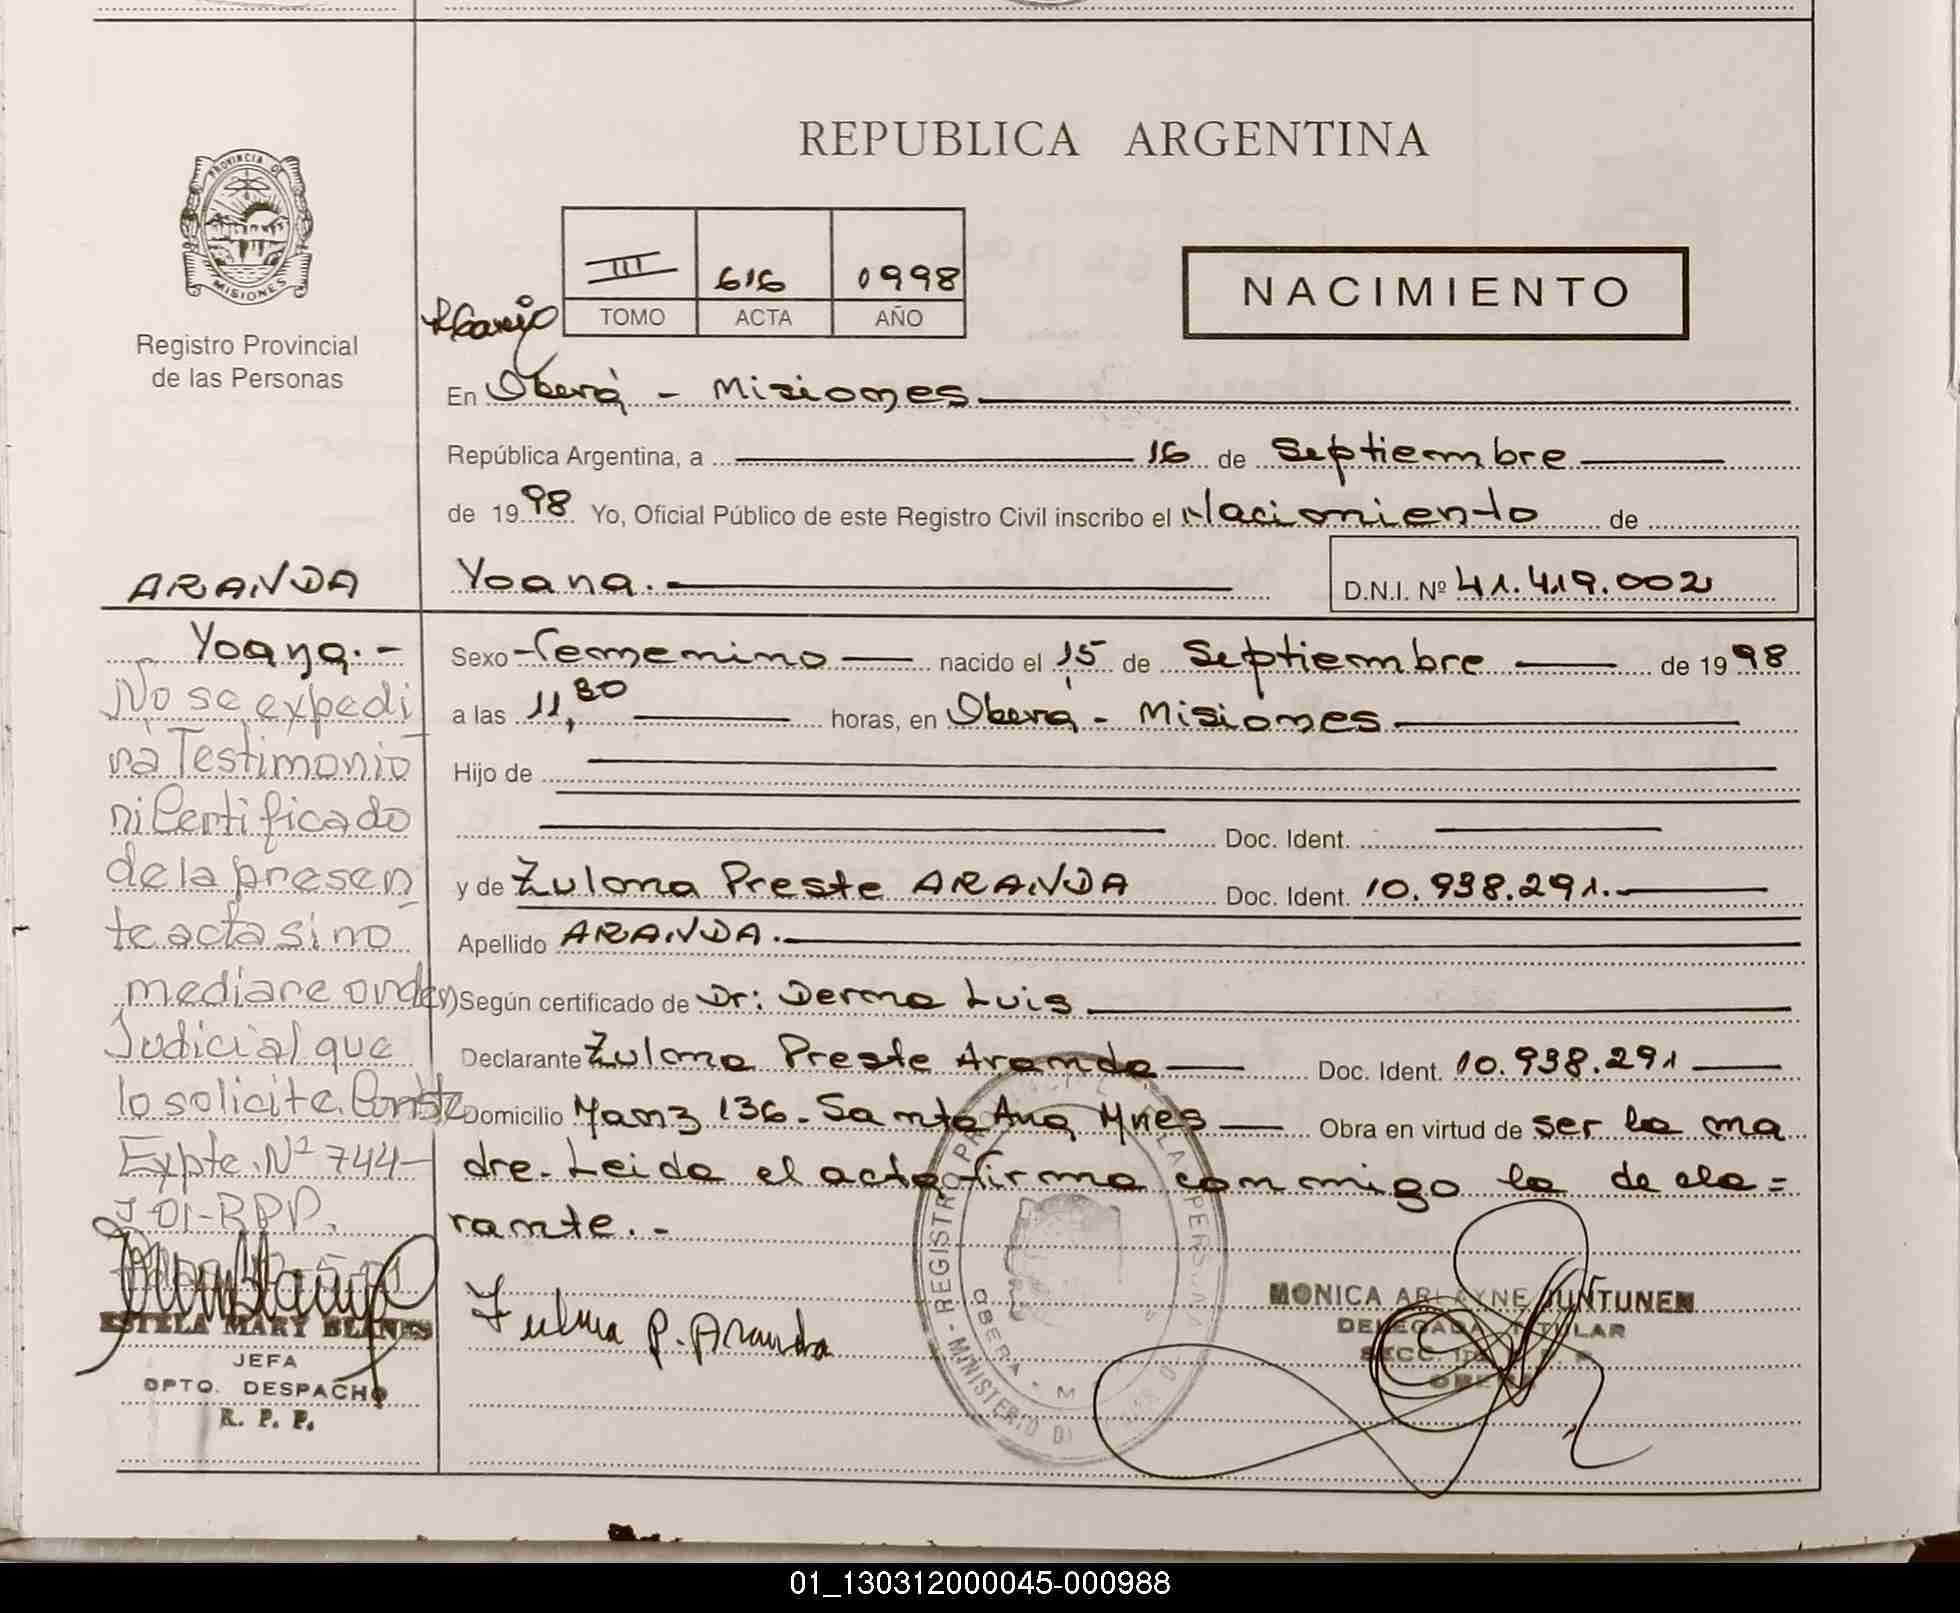 REPUBLICA ARGENTINA
PROVINCIA DE
MISIONES
Registro Provincial
de las Personas
III 616 0998
TOMO ACTA AÑO
NACIMIENTO
En Oberá - Misiones
República Argentina, a 16 de Septiembre
de 1998 Yo, Oficial Público de este Registro Civil inscribo el Nacimiento de
Yoana.
D.N.I. Nº 41.419.002
ARANDA
Yoana.-
No se expedi
rá Testimonio
ni Certificado
de la presen
te acta si no
mediare orden
Judicial que
lo solicite. Conste
Expte. Nº 744-
J 01-RPP.
ESTELA MARY BLANES
JEFA
DPTO. DESPACHO
R. P. P.
Sexo Femenino nacido el 15 de Septiembre de 1998
a las 11,30 horas, en Oberá - Misiones
Hijo de
Doc. Ident.
y de Zulma Preste ARANDA Doc. Ident. 10.938.291.
Apellido ARANDA.
Según certificado de Dr: Derma Luis
Declarante Zulma Preste Aranda Doc. Ident. 10.938.291
Domicilio Manz 136 - Santa Ana Mnes Obra en virtud de ser la ma
dre. Leida el acta firma conmigo la decla=
rante.-
Zulma P. Aranda
REGISTRO PERSONAS - MINISTERIO
OBERA - M
MONICA ARLAYNE JUNTUNEN
DELEGADA TITULAR
SECC.
OBERA
01_130312000045-000988